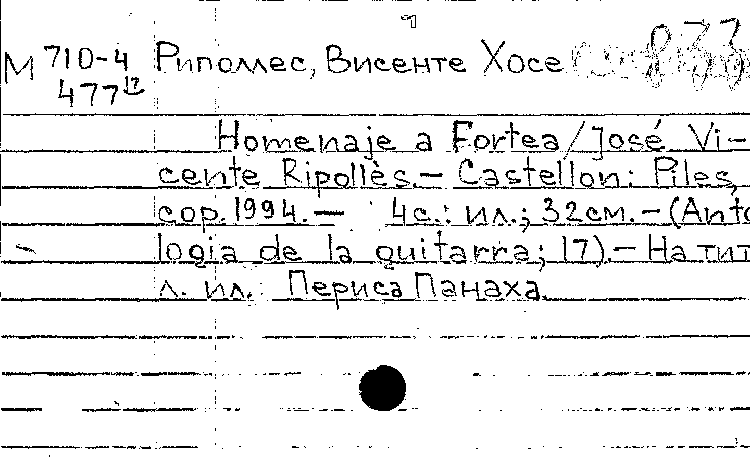 М 710-4 Риполлес, Висенте Хосе
477 17
Homenaje a Fortea / José Vi-
cente Ripollès. – Castellon: Piles,
cop. 1994. – 4 с.: ил.; 32 см. – (Anto
logia de la guitarra; 17). – На тит
л. ил. Периса Панаха.